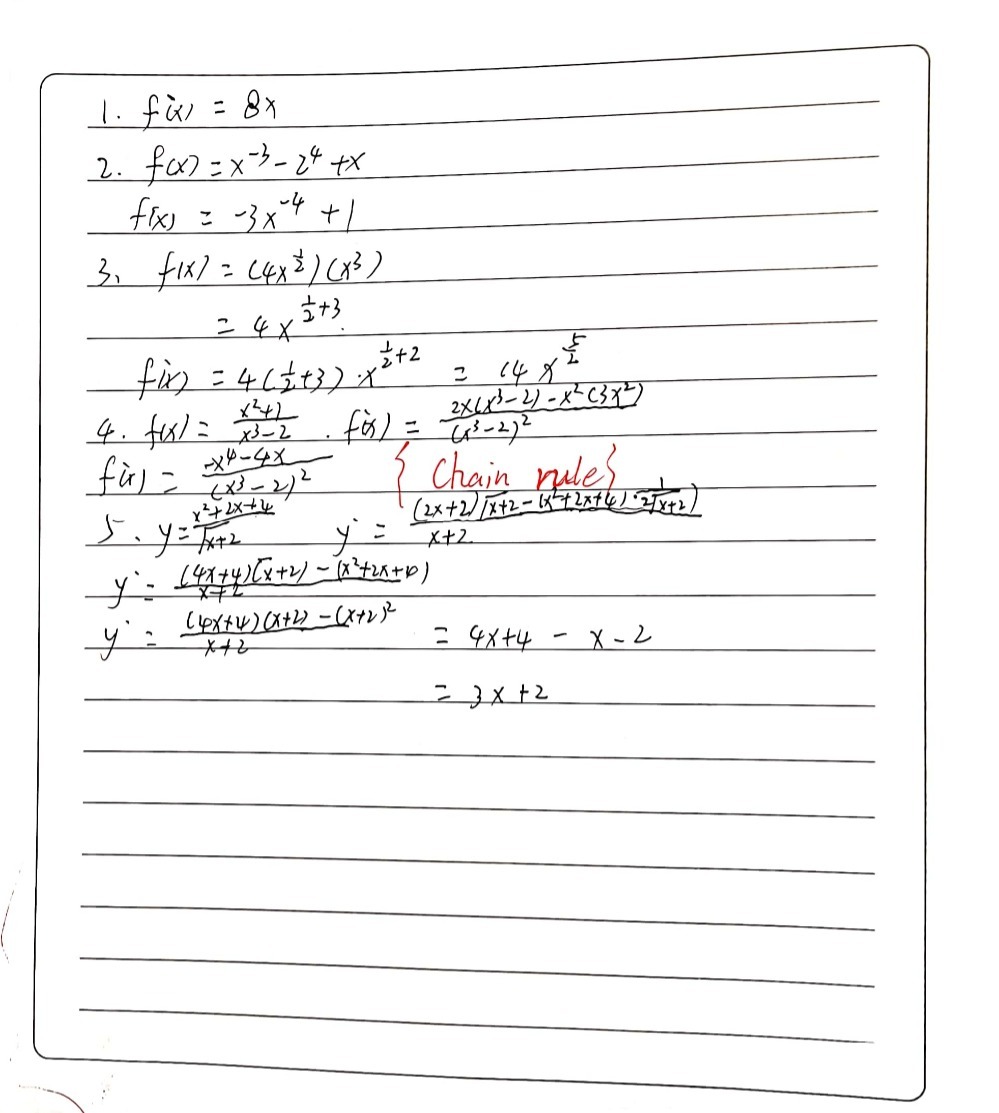 1. f'(x) = 8x
2. f(x) = x^{-3} - 2^4 + x
f'(x) = -3x^{-4} + 1
3. f(x) = (4x^{1/2})(x^3)
= 4x^{1/2+3}
f'(x) = 4(1/2+3)·x^{1/2+2} = 14x^{5/2}
4. f(x) = (x^2+1)/(x^3-2) . f'(x) = (2x(x^3-2) - x^2(3x^2))/(x^3-2)^2
f'(x) = (-x^4-4x)/(x^3-2)^2 { Chain rule }
5. y = (x^2+2x+4)/√(x+2) y' = ((2x+2)√(x+2) - (x^2+2x+4)·1/(2√(x+2)))/(x+2)
y' = ((4x+4)(x+2) - (x^2+2x+4))/(x+2)
y' = ((4x+4)(x+2) - (x+2)^2)/(x+2) = 4x+4 - x-2
= 3x+2